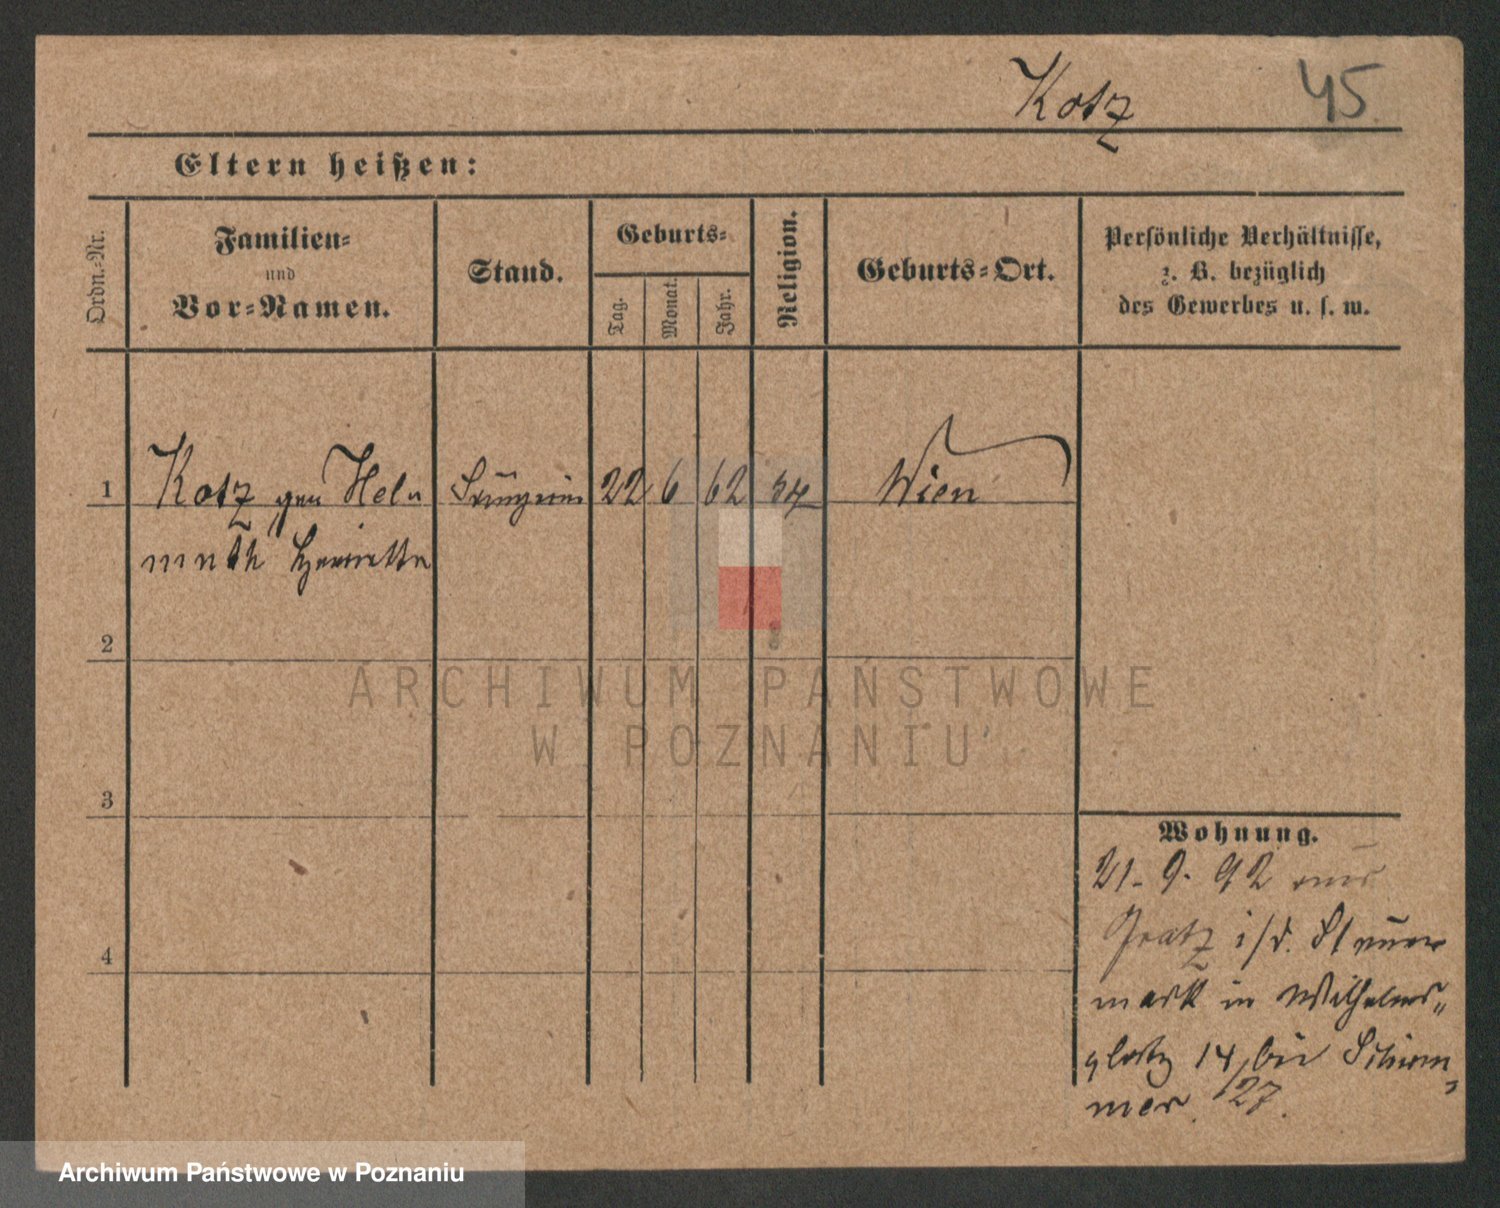 Kotz 45
Eltern heißen:
Ordn.-Nr.
Familien-
und
Vor-Namen.
Stand.
Geburts-
Tag.
Monat.
Jahr.
Religion.
Geburts-Ort.
Persönliche Verhältnisse,
z. B. bezüglich
des Gewerbes u. s. w.
1 Kotz gen Hel" Sängerin 22 6 62 Wien
muth Henriette
2
3
4
Wohnung.
21. 9. 92 aus
Gratz i/d. Steuer
mark in Wilhelms"
platz 14 bei Schirm-
mer 27.
ARCHIWUM PAŃSTWOWE
W POZNANIU
Archiwum Państwowe w Poznaniu